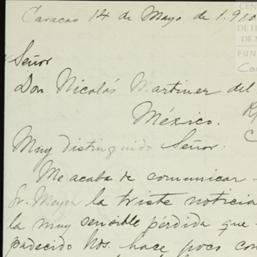 Caracas 14 de Mayo de 1.9
Señor
Don Nicolás Martinez del
México.
Muy distinguido Señor:
Me acaba de comunicar
Sr. Meyer la triste noticia
la muy sensible pérdida que
padecido Uds. hace poco con